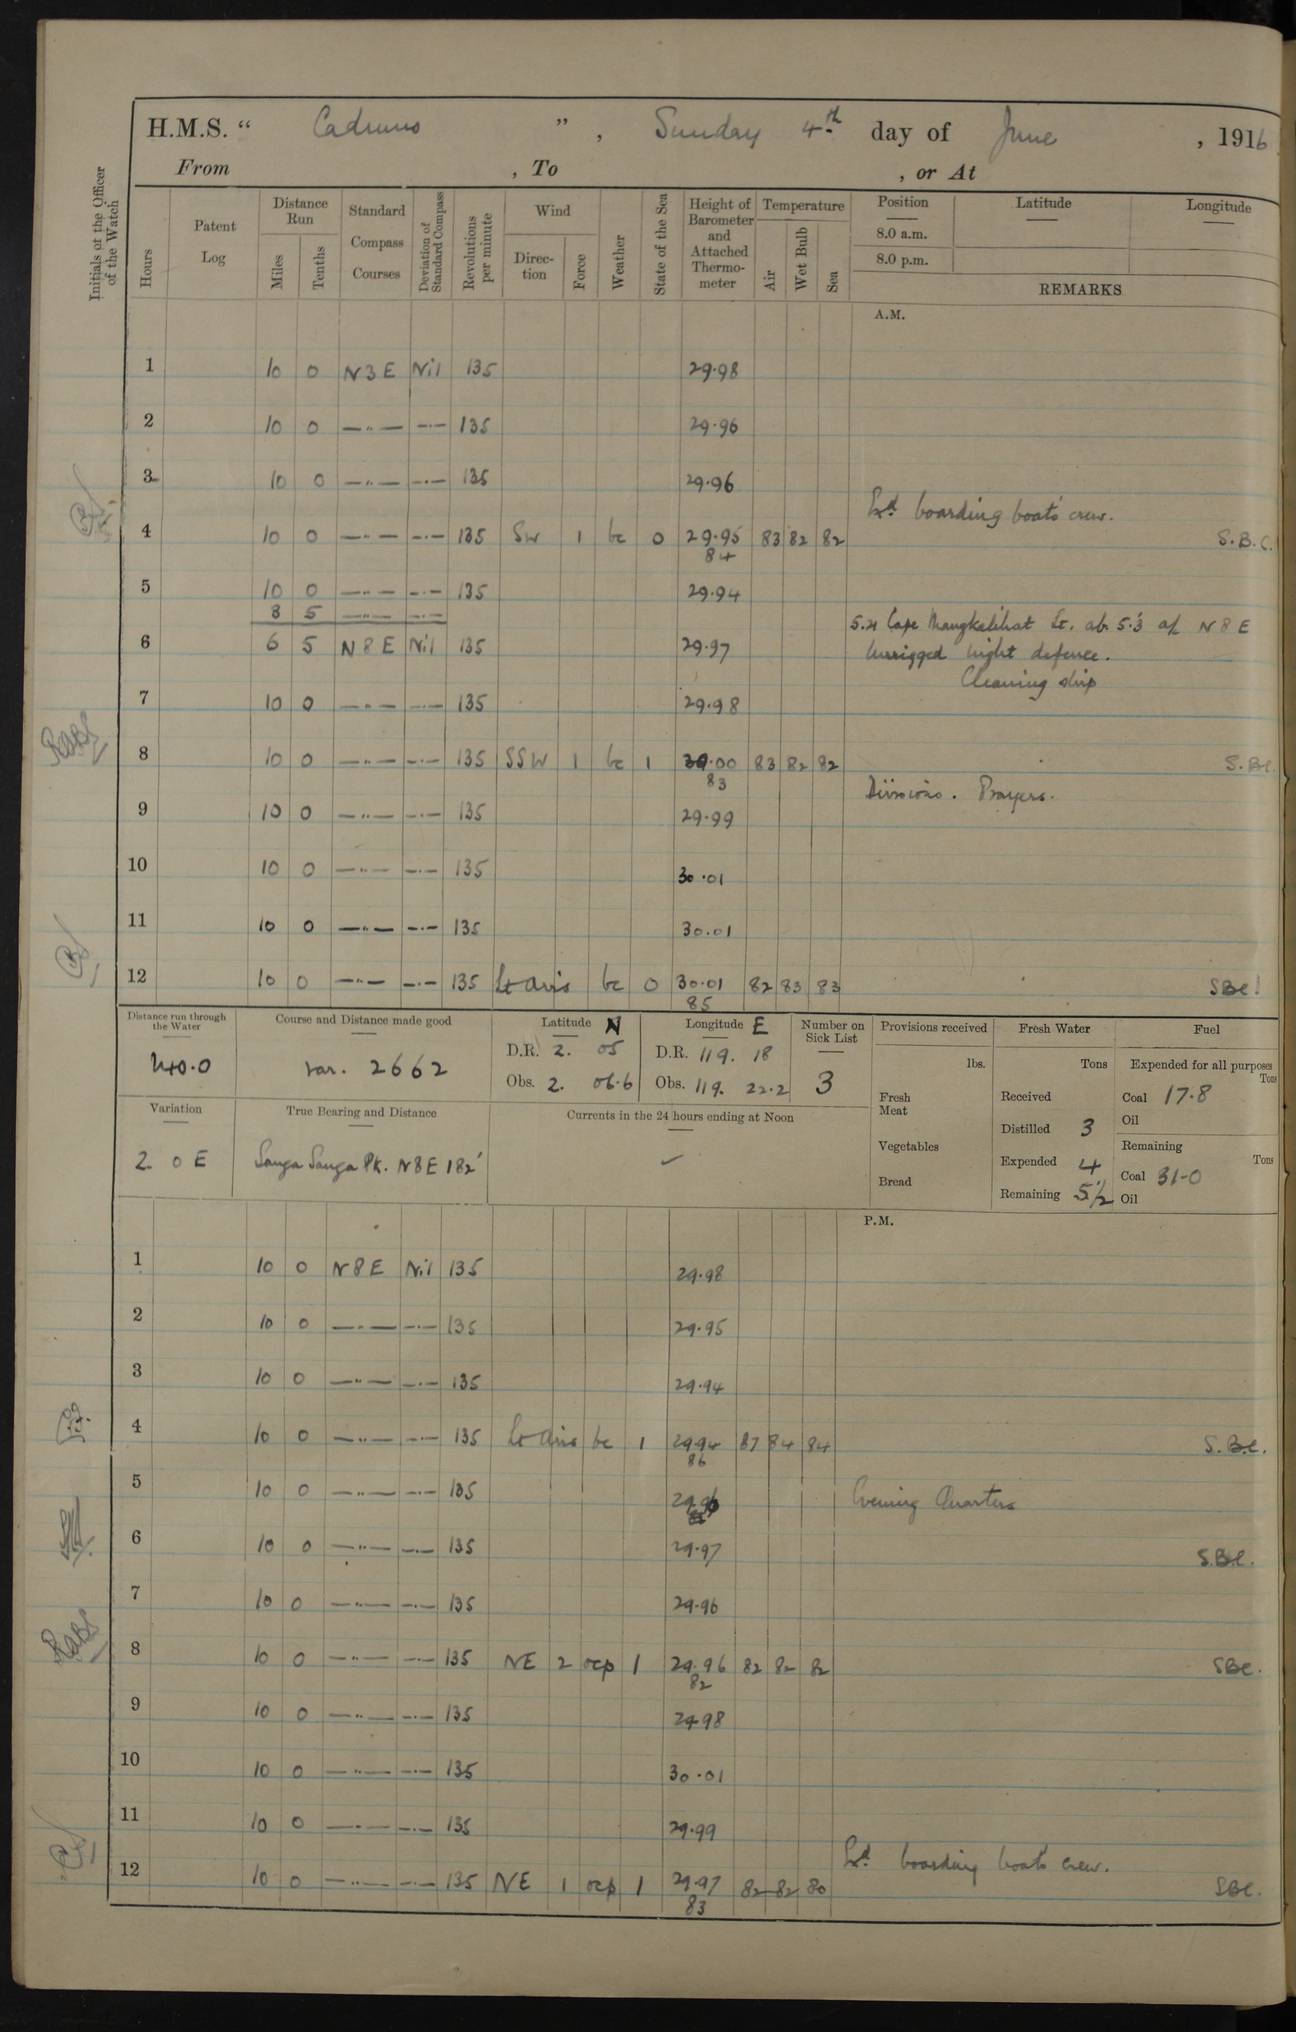 H.M.S. “ Cadmus ” , Sunday 4th day of June , 1916
From , To , or At
Initials of the Officer of the Watch
Hours
Patent Log
Distance Run
Miles
Tenths
Standard Compass Courses
Deviation of Standard Compass
Revolutions per minute
Wind
Direction
Force
Weather
State of the Sea
Height of Barometer and Attached Thermometer
Temperature
Air
Wet Bulb
Sea
Position
8.0 a.m.
8.0 p.m.
Latitude
Longitude
REMARKS
A.M.
1 10 0 N3E Nil 135 29.98
2 10 0 —"— —"— 135 29.96
3 10 0 —"— —"— 135 29.96
boarding boat's crew.
4 10 0 —"— —"— 135 SW 1 bc 0 29.95 83 82 82 S.B.C.
84
5 10 0 —"— —"— 135 29.94
3 5 —"— —"—
5.21 Cape Mangkalihat Lt. ab. 5.3 a/c N8E
6 6 5 N8E Nil 135 29.97
Unrigged night defence.
Cleaning ship
7 10 0 —"— —"— 135 29.98
8 10 0 —"— —"— 135 SSW 1 bc 1 30.00 83 82 82 S.BC.
83
Divisions. Prayers.
9 10 0 —"— —"— 135 29.99
10 10 0 —"— —"— 135 30.01
11 10 0 —"— —"— 135 30.01
12 10 0 —"— —"— 135 Lt airs bc 0 30.01 82 83 83 SBC.
85
Distance run through the Water
240.0
Course and Distance made good
var. 2662
Latitude N
D.R. 2. 05
Obs. 2. 06.6
Longitude E
D.R. 119. 18
Obs. 119. 22.2
Number on Sick List
3
Variation
2. 0 E
True Bearing and Distance
Sanga Sanga Pk. N8E 182'
Currents in the 24 hours ending at Noon
✓
Provisions received
lbs.
Fresh Meat
Vegetables
Bread
Fresh Water
Tons
Received
Distilled 3
Expended 4
Remaining 5½
Fuel
Expended for all purposes
Tons
Coal 17.8
Oil
Remaining
Tons
Coal 31-0
Oil
P.M.
1 10 0 N8E Nil 135 29.98
2 10 0 —"— —"— 135 29.95
3 10 0 —"— —"— 135 29.94
4 10 0 —"— —"— 135 Lt airs bc 1 29.94 87 84 84 S.B.C.
86
5 10 0 —"— —"— 135 29.96 Evening Quarters
6 10 0 —"— —"— 135 29.97 S.B.C.
7 10 0 —"— —"— 135 29.96
8 10 0 —"— —"— 135 NE 2 ocp 1 29.96 82 82 82 SBC.
82
9 10 0 —"— —"— 135 29.98
10 10 0 —"— —"— 135 30.01
11 10 0 —"— —"— 135 29.99
boarding boat's crew.
12 10 0 —"— —"— 135 NE 1 ocp 1 29.97 82 82 80 SBC.
83